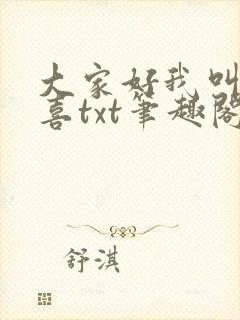 大家好我叫
喜txt笔趣阁
舒淇